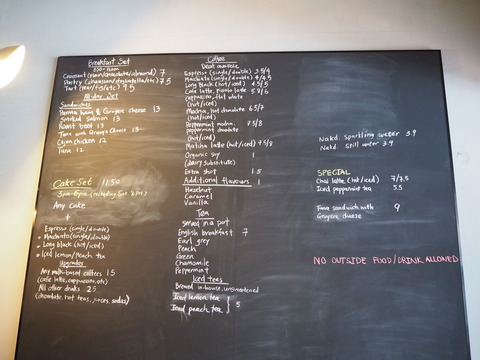 Breakfast Set
Croissant (plain/chocolate/almond) 7
7.5
Tart (pear/egg/etc) 9.5
All-day Set
Sandwiches
Parma ham & Gruyere cheese 13
Smoked salmon 13
Roast beef 13
Tuna with Gruyere Cheese 13
Cajun chicken 12
Tuna 12
Cake Set 11.50
Any cake
+
Espresso (single/double)
Macchiato (single/double)
Long black (hot/iced)
Iced lemon/peach tea
Upgrades
Any milk-based coffees 1.5
(cafe latte, cappuccino, etc)
All other drinks 2.5
(chocolate, hot teas, juices, sodas)
Coffee
Espresso (single/double) 3.5/4
Macchiato (single/double) 4/4.5
Long black (hot/iced) 4.5/5
Cafe latte, piccolo latte 5.5/6
cappuccino, flat white
(hot/iced)
Mocha, hot chocolate 6.5/7
(hot/iced)
Peppermint mocha 7.5/8
peppermint chocolate
(hot/iced)
Matcha latte (hot/iced) 7.5/8
Organic soy 1
(dairy substitute)
Extra shot 1.5
Additional flavours 1
Hazelnut
Caramel
Vanilla
Tea
Served in a pot
English breakfast 7
Earl grey
Peach
Green
Chamomile
Peppermint
Iced teas
Brewed in-house, unsweetened
Iced lemon tea
Iced peach tea 5
Nakd. Sparkling water 3.9
Nakd still water 3.9
SPECIAL
Chai latte (hot/iced) 7/7.5
Iced peppermint tea 5.5
Tuna sandwich with 9
Gruyere cheese
NO OUTSIDE FOOD/DRINK ALLOWED